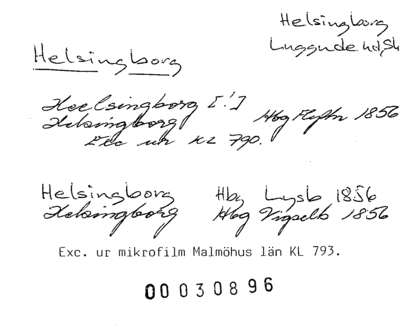 Helsingborg
Luggude hd, Sk
Helsingborg
Heelsingborg [!]
Helsingborg Hbg Flyttn 1856
Exc ur KL 790.
Helsingborg Hbg Lysb 1856
Helsingborg Hbg Vigselb 1856
Exc. ur mikrofilm Malmöhus län KL 793.
00 030896